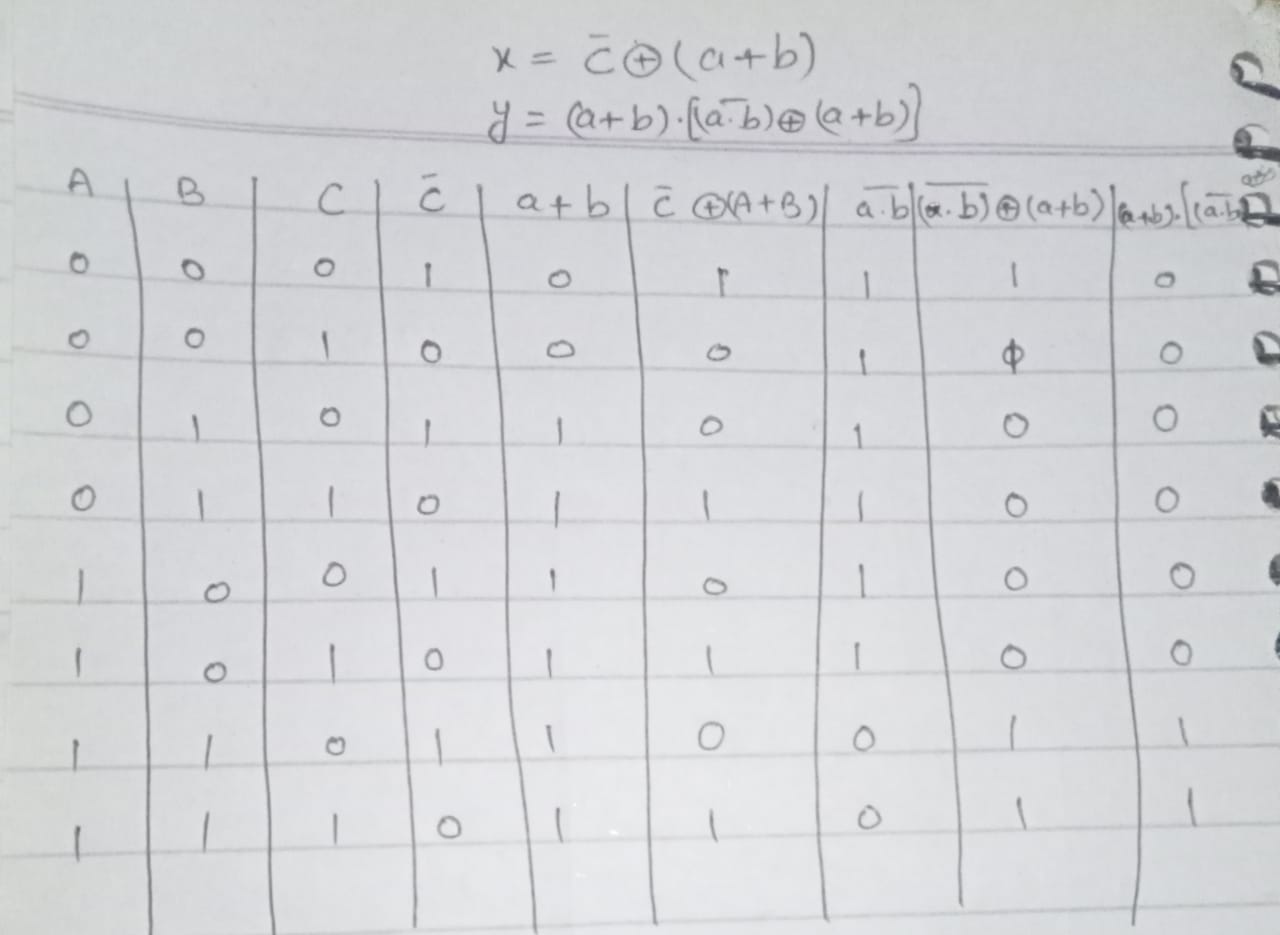 x = c̄ ⊕ (a + b)
y = (a + b) · [(a̅·̅b̅) ⊕ (a + b)]
A | B | C | c̄ | a + b | c̄ ⊕ (A + B) | a̅·̅b̅ | (̅a̅·̅b̅)̅ ⊕ (a + b) | (a + b) · [(a̅·̅b̅
0 0 0 1 0 1 1 1 0
0 0 1 0 0 0 1 ϕ 0
0 1 0 1 1 0 1 0 0
0 1 1 0 1 1 1 0 0
1 0 0 1 1 0 1 0 0
1 0 1 0 1 1 1 0 0
1 1 0 1 1 0 0 1 1
1 1 1 0 1 1 0 1 1